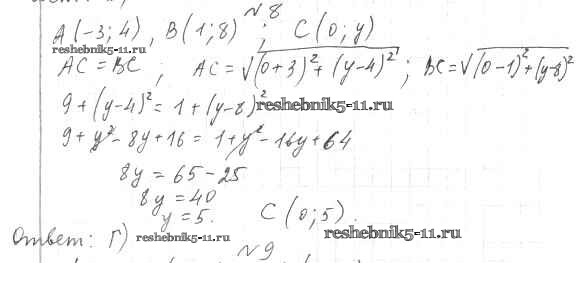 №8
A(-3;4), B(1;8); C(0;y)
reshebnik5-11.ru
AC = BC; AC = √((0+3)²+(y-4)²); BC = √((0-1)²+(y-8)²)
9+(y-4)² = 1+(y-8)² reshebnik5-11.ru
9+y²-8y+16 = 1+y²-16y+64
8y = 65-25
8y = 40
y = 5. C(0;5).
Ответ: Г) reshebnik5-11.ru reshebnik5-11.ru
№9